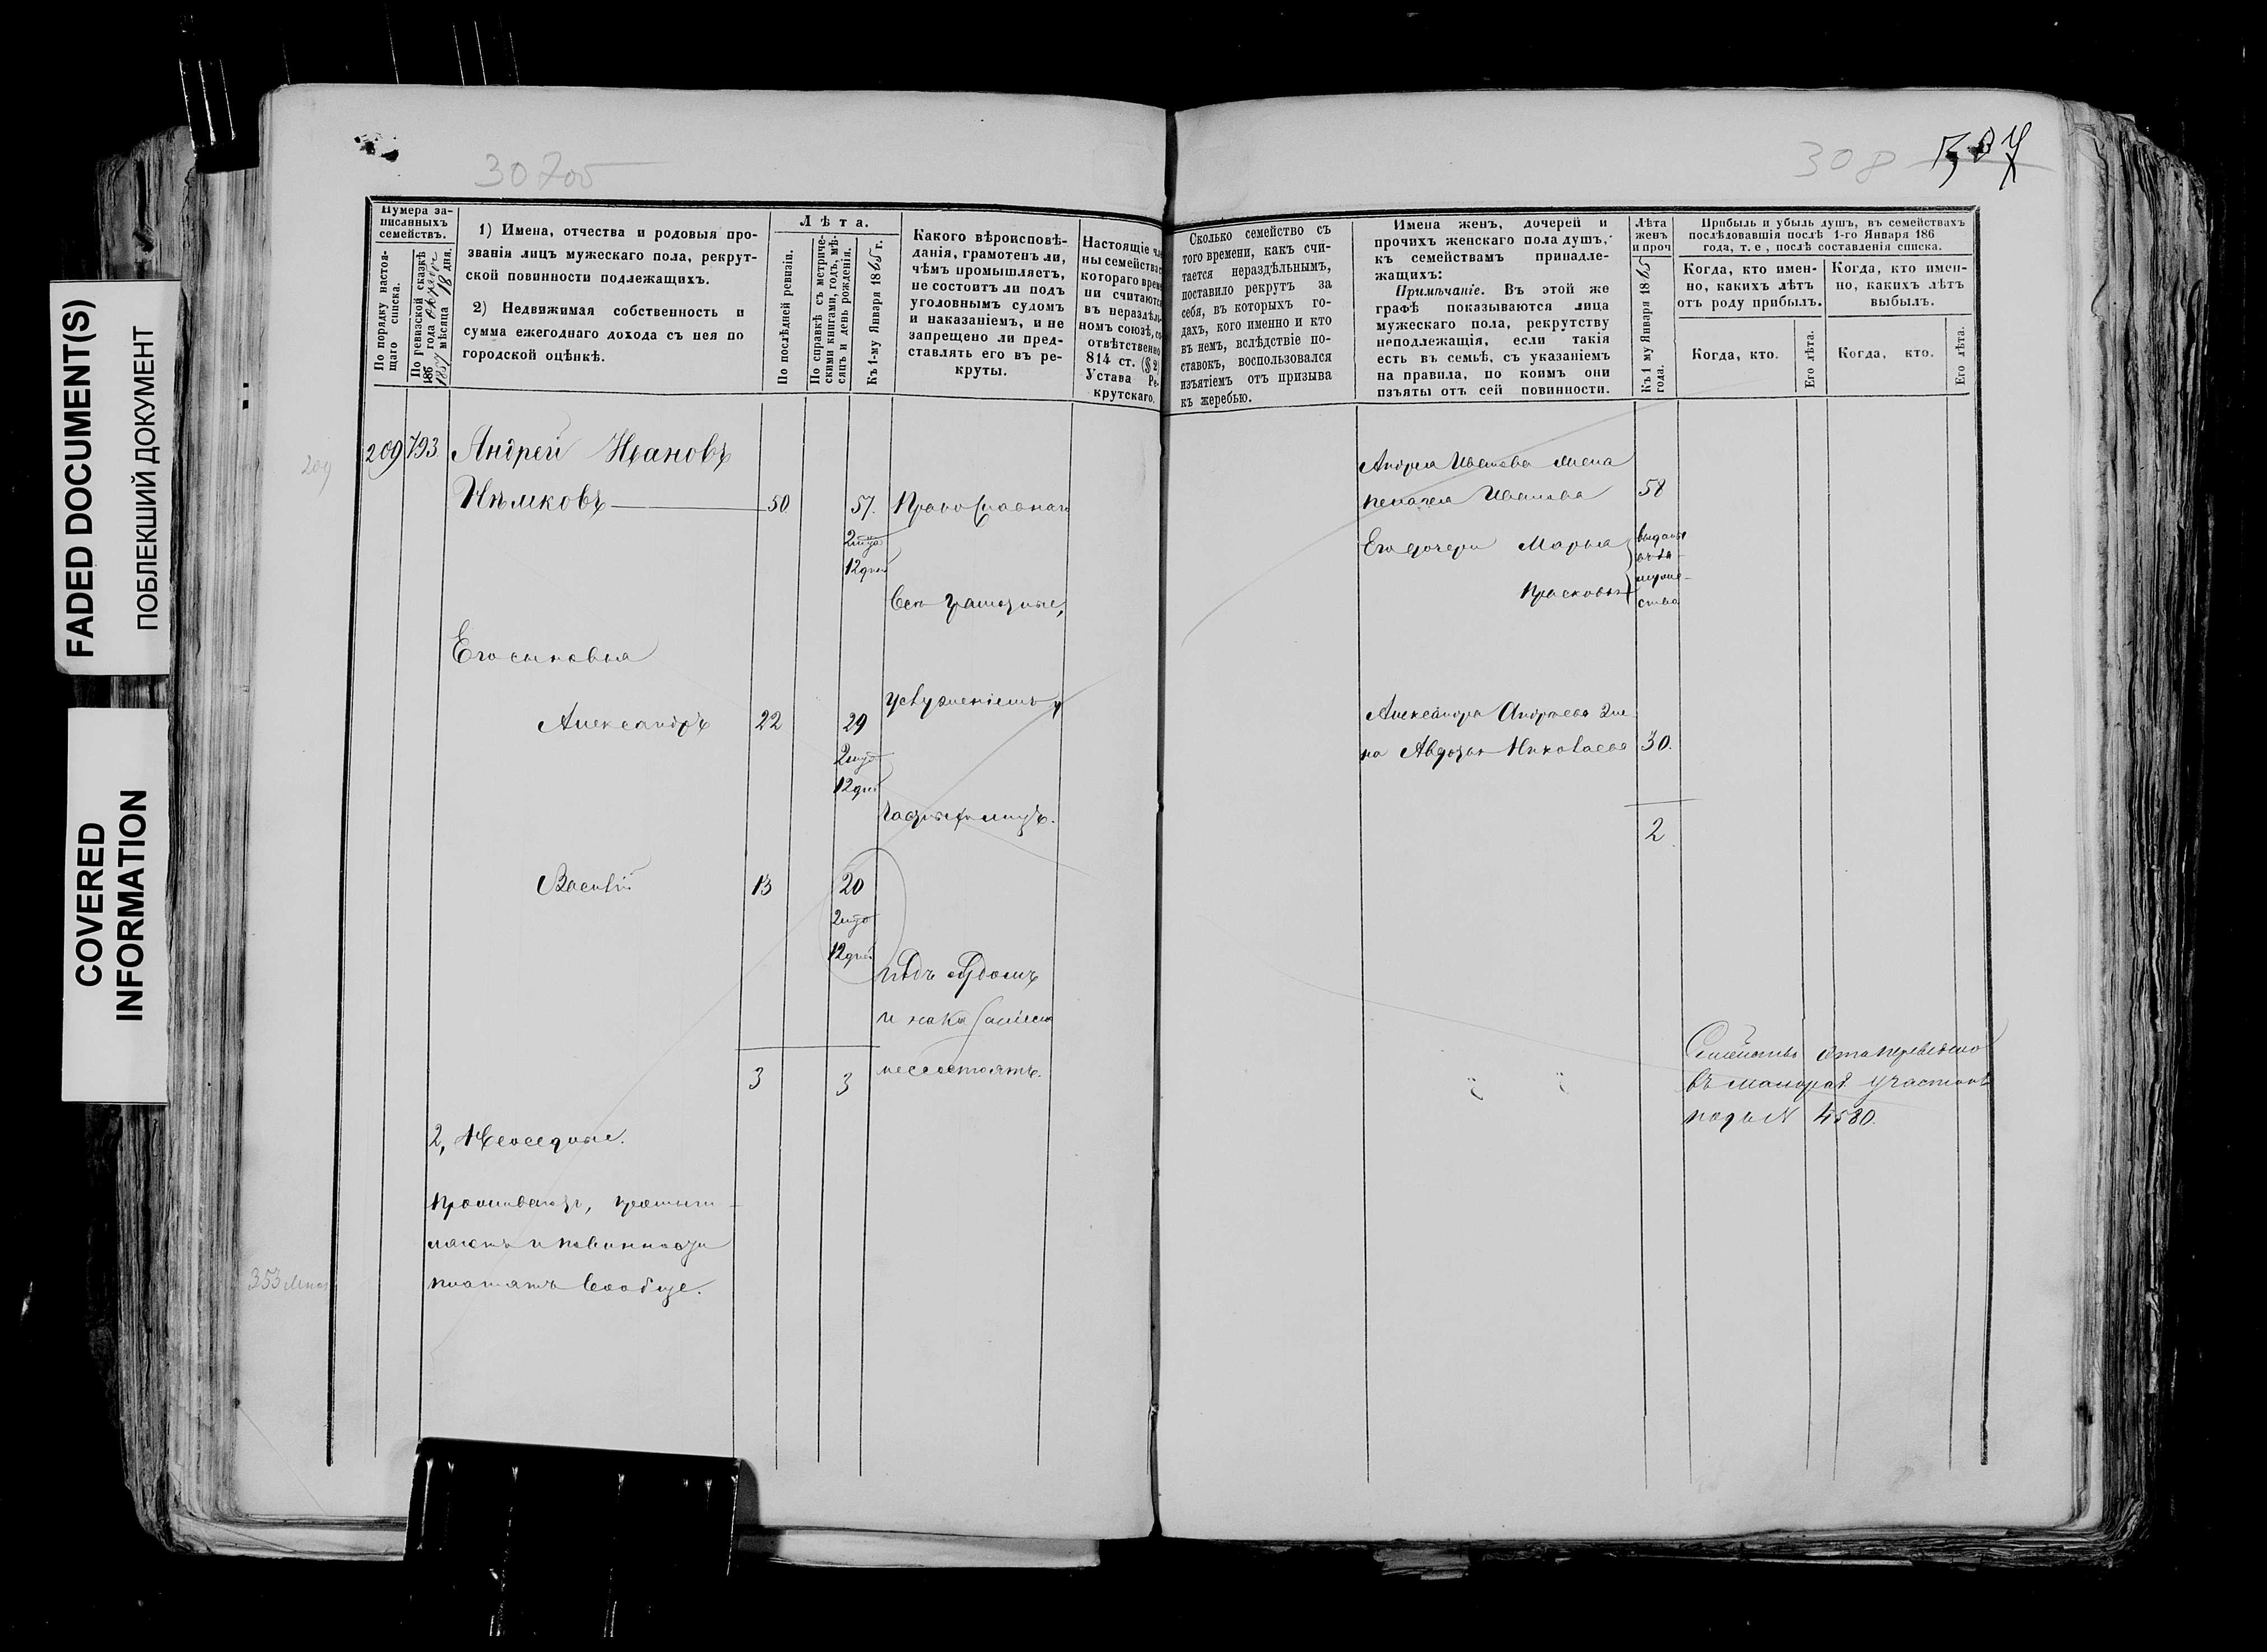 FADED DOCUMENT(S)
ПОБЛЕКШИЙ ДОКУМЕНТ
COVERED
INFORMATION
307об
Нумера за-
писанныхъ
семействъ.
По порядку настоя-
щаго списка.
По ревизской сказкѣ
186 года Апрѣля
1857 мѣсяца 18 дня.
1) Имена, отчества и родовыя про-
званія лицъ мужескаго пола, рекрут-
ской повинности подлежащихъ.
2) Недвижимая собственность и
сумма ежегоднаго дохода съ нея по
городской оцѣнкѣ.
Лѣта.
По послѣдней ревизіи.
По справкѣ съ метриче-
скими книгами, годъ, мѣ-
сяцъ и день рожденія.
Къ 1-му Января 1865 г.
Какого вѣроисповѣ-
данія, грамотенъ ли,
чѣмъ промышляетъ,
не состоитъ ли подъ
уголовнымъ судомъ
и наказаніемъ, и не
запрещено ли пред-
ставлять его въ ре-
круты.
Настоящіе чле
ны семейства с
котораго време
ни считаются
въ нераздѣль
номъ союзѣ, со
отвѣтственно
814 ст. (§ 2)
Устава Ре-
крутскаго.
209
209 793 Андрей Ивановъ
Нѣмковъ 50 57. Православнаго
2 мѣс
12 дней
Всѣ грамотные,
Его сыновья
услуженіемъ
Александръ 22 29
2 мѣс
12 дней
Василій 13 20
2 мѣс
12 дней
подъ судомъ
и наказаніемъ
3 3 несостоятъ.
2, Неоседлые.
Проживаютъ,
и повинности
платятъ вообще.
353
308 307
Сколько семейство съ
того времени, какъ счи-
тается нераздѣльнымъ,
поставило рекрутъ за
себя, въ которыхъ го-
дахъ, кого именно и кто
въ немъ, вслѣдствіе по-
ставокъ, воспользовался
изъятіемъ отъ призыва
къ жеребью.
Имена женъ, дочерей и
прочихъ женскаго пола душъ,
къ семействамъ принадле-
жащихъ:
Примѣчаніе. Въ этой же
графѣ показываются лица
мужескаго пола, рекрутству
неподлежащія, если такія
есть въ семьѣ, съ указаніемъ
на правила, по коимъ они
изъяты отъ сей повинности.
Лѣта
женъ
и проч
Къ 1 му Января 1865
года.
Прибыль и убыль душъ, въ семействахъ
послѣдовавшія послѣ 1-го Января 186
года, т. е., послѣ составленія списка.
Когда, кто имен-
но, какихъ лѣтъ
отъ роду прибылъ.
Когда, кто имен-
но, какихъ лѣтъ
выбылъ.
Когда, кто.
Его лѣта.
Когда, кто.
Его лѣта.
Андрея Иванова жена
Пелагея Иванова 58
Его дочери Марья
Прасковья
выданы
въ за-
муже-
ства
Александра Андреева Же-
на Авдотья Николаева 30.
2
Семейство это переведено
въ участокъ
подъ N 4580.